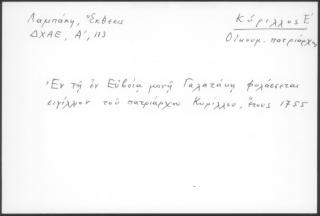 Λαμπάκη, Ἔκθεσις
ΔΧΑΕ, Α', 113
Κύριλλος Ε'
Οἰκουμ. πατριάρχης
Ἐν τῇ ἐν Εὐβοίᾳ μονῇ Γαλατάκη φυλάσσεται
σιγίλλιον τοῦ πατριάρχου Κυρίλλου, ἔτους 1755